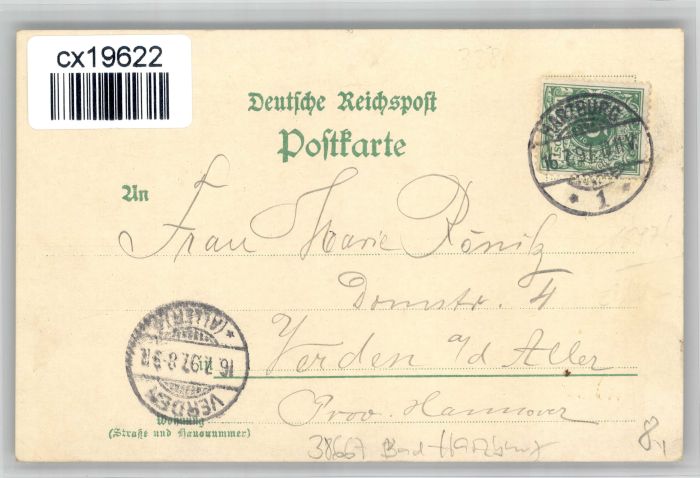 cx19622
Deutsche Reichspost
Postkarte
HARZBURG
1
An
Frau Marie Rönitz
Domstr. 4
Verden a/d Aller
Prov. Hannover
VERDEN
(ALLER)
16 97 8-9 N.
Wohnung
(Straße und Hausnummer)
38667 Bad Harzburg
8,